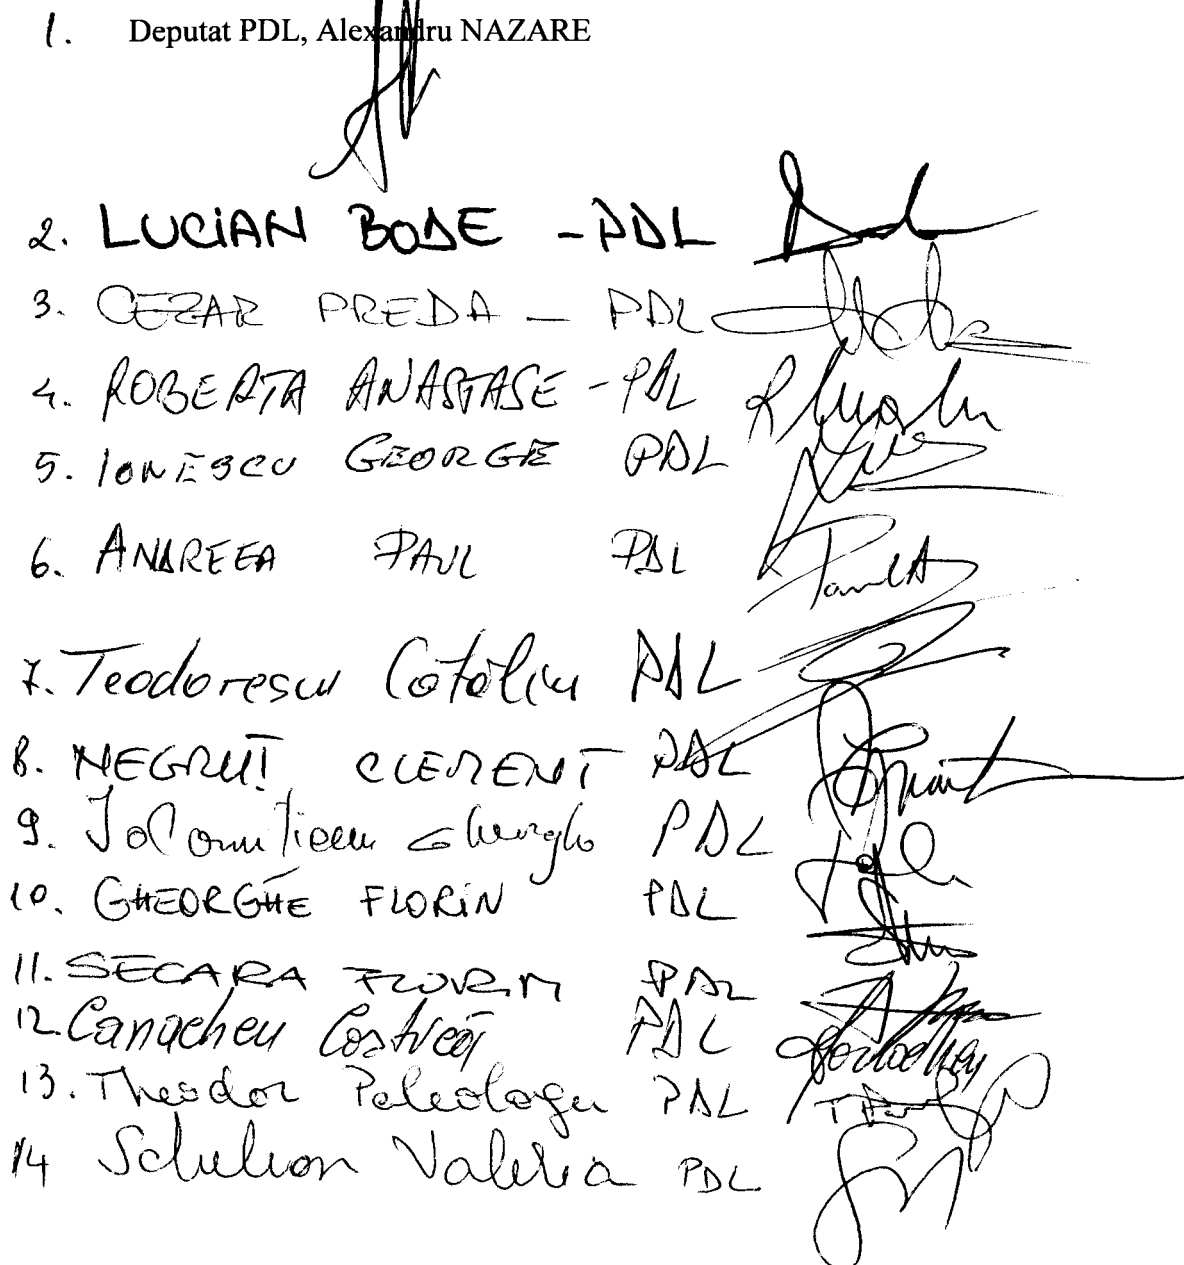 1. Deputat PDL, Alexandru NAZARE
2. LUCIAN BODE - PDL
3. CEZAR PREDA - PDL
4. ROBERTA ANASTASE - PDL
5. IONESCU GEORGE PDL
6. ANDREEA PAUL PDL
7. Teodorescu Cătălin PDL
8. NEGRUȚ CLEMENT PDL
9. Ialomițianu Gheorghe PDL
10. GHEORGHE FLORIN PDL
11. SECARA FLORIN PDL
12 Canacheu Costică PDL
13. Theodor Paleologu PDL
14 Schelean Valeria PDL